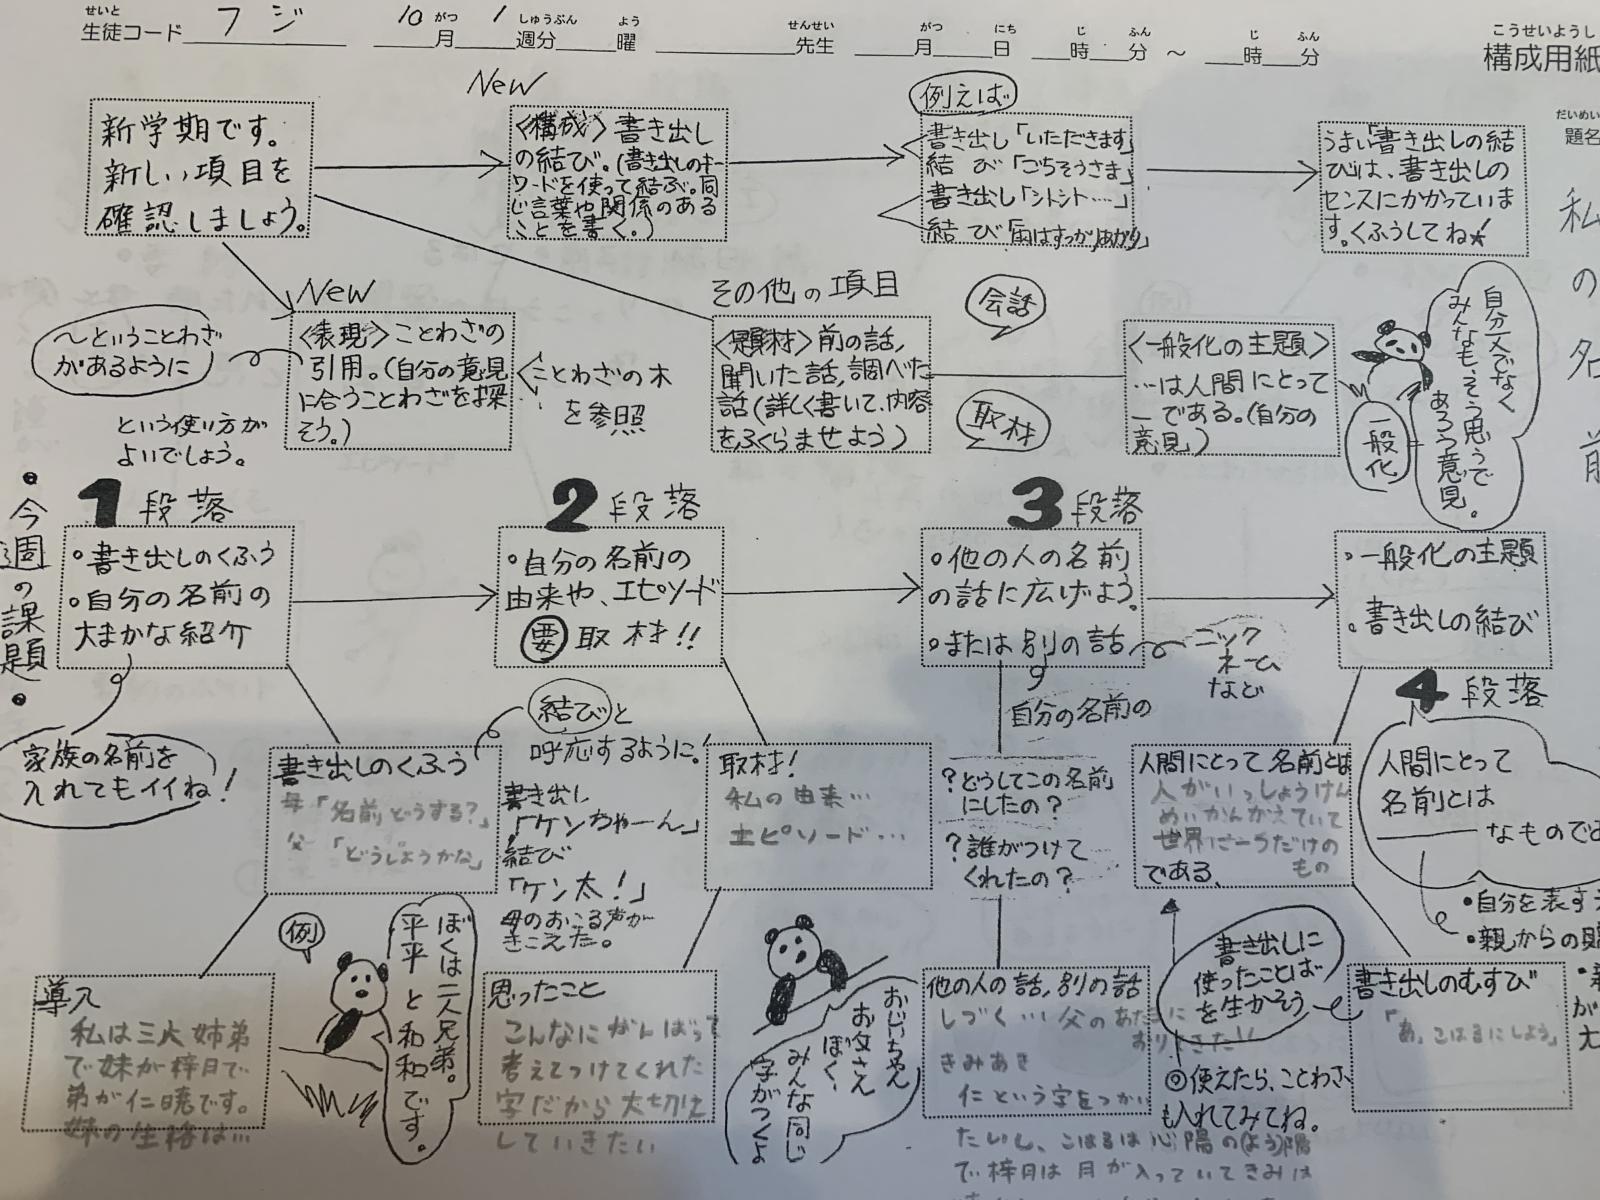 せいと
生徒コード フジ
10 がつ 1 しゅうぶん よう
月 週分 曜
せんせい
先生
がつ にち じ ふん じ ふん
月 日 時 分 ～ 時 分
こうせいようし
構成用紙
だいめい
題名
私の名前
新学期です。
新しい項目を
確認しましょう。
New
〈構成〉書き出し
の結び。(書き出しのキー
ワードを使って結ぶ。同
じ言葉や関係のある
ことを書く。)
例えば
書き出し「いただきます」
結び「ごちそうさま」
書き出し「シトシト……」
結び「雨はすっかりあがり」
うまい「書き出しの結
びは、書き出しの
センスにかかっていま
す。くふうしてね★
New
〈表現〉ことわざの
引用。(自分の意見
に合うことわざを探
そう。)
～ということわざ
があるように
という使い方が
よいでしょう。
ことわざの木
を参照
その他の項目
〈題材〉前の話,
聞いた話,調べた
話(詳しく書いて、内容
をふくらませよう)
会話
取材
〈一般化の主題〉
…は人間にとって
ーである。(自分の
意見」)
自分丈でなく
みんなも、そう思うで
あろう意見。
一般化
・今週の課題・
1段落
・書き出しのくふう
・自分の名前の
大まかな紹介
家族の名前を
入れてもイイね!
2段落
・自分の名前の
由来や、エピソード
要 取材!!
3段落
・他の人の名前
の話に広げよう。
・または別の話
ニック
ネーム
など
自分の名前の
・一般化の主題
・書き出しの結び
4段落
人間にとって
名前とは
なもので
・自分を表す
・親からの
書き出しのくふう
母「名前どうする?」
父「どうしようかな」
結びと
呼応するように!
書き出し
「ケンちゃーん」
結び
「ケン太!」
母のおこる声が
きこえた。
取材!
私の由来…
エピソード…
?どうしてこの名前
にしたの?
?誰がつけて
くれたの?
人間にとって名前とは
人がいっしょうけん
めいかんがえていて
世界に一つだけの
もの
である、
導入
私は三人姉弟
で妹が梓月で
弟が仁暁です。
妹の性格は…
例
ぼくは二人兄弟。
平平と和和です。
思ったこと
こんなにがんばって
考えてつけてくれた
字だから大切に
していきたい
おじいちゃん
お父さん
ぼく、
みんな同じ
字がつくよ
他の人の話,別の話
しづく…父のあたまに
おりてきた!!
きみあき
仁という字をつかい
たいし、こはるは心陽の(よう)陽
で梓月は月が入っていてきみは
書き出しに
使ったことば
を生かそう
◎使えたら、ことわざ
も入れてみてね。
書き出しのむすび
「あ、こはるにしよう」